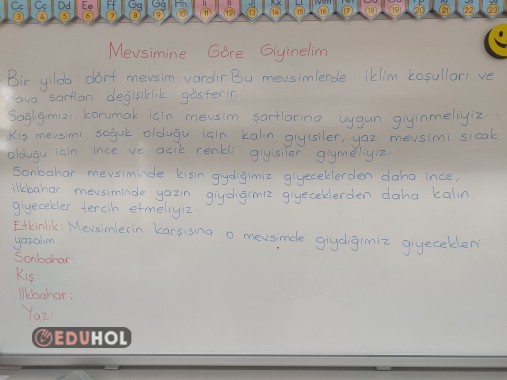 Cc Çç Dd Ee Ff Gg Ğğ Hh
3 4 5 6 7 8 9 10 11 12 13 14 15 16 17 18 19 20 21 22 23
Mevsimine Göre Giyinelim
Bir yılda dört mevsim vardır Bu mevsimlerde iklim koşulları ve
ava şartları değişiklik gösterir
Sağlığımızı korumak için mevsim şartlarına uygun giyinmeliyiz.
Kış mevsimi soğuk olduğu için kalın giysiler, yaz mevsimi sıcak
olduğu için ince ve açık renkli giysiler giymeliyiz.
Sonbahar mevsiminde kışın giydiğimiz giyeceklerden daha ince,
ilkbahar mevsiminde yazın giydiğimiz giyeceklerden daha kalın
giyecekler tercih etmeliyiz.
Etkinlik: Mevsimlerin karşısına o mevsimde giydiğimiz giyecekleri
yazalım
Sonbahar:
Kış:
İlkbahar:
Yaz:
EDUHOL